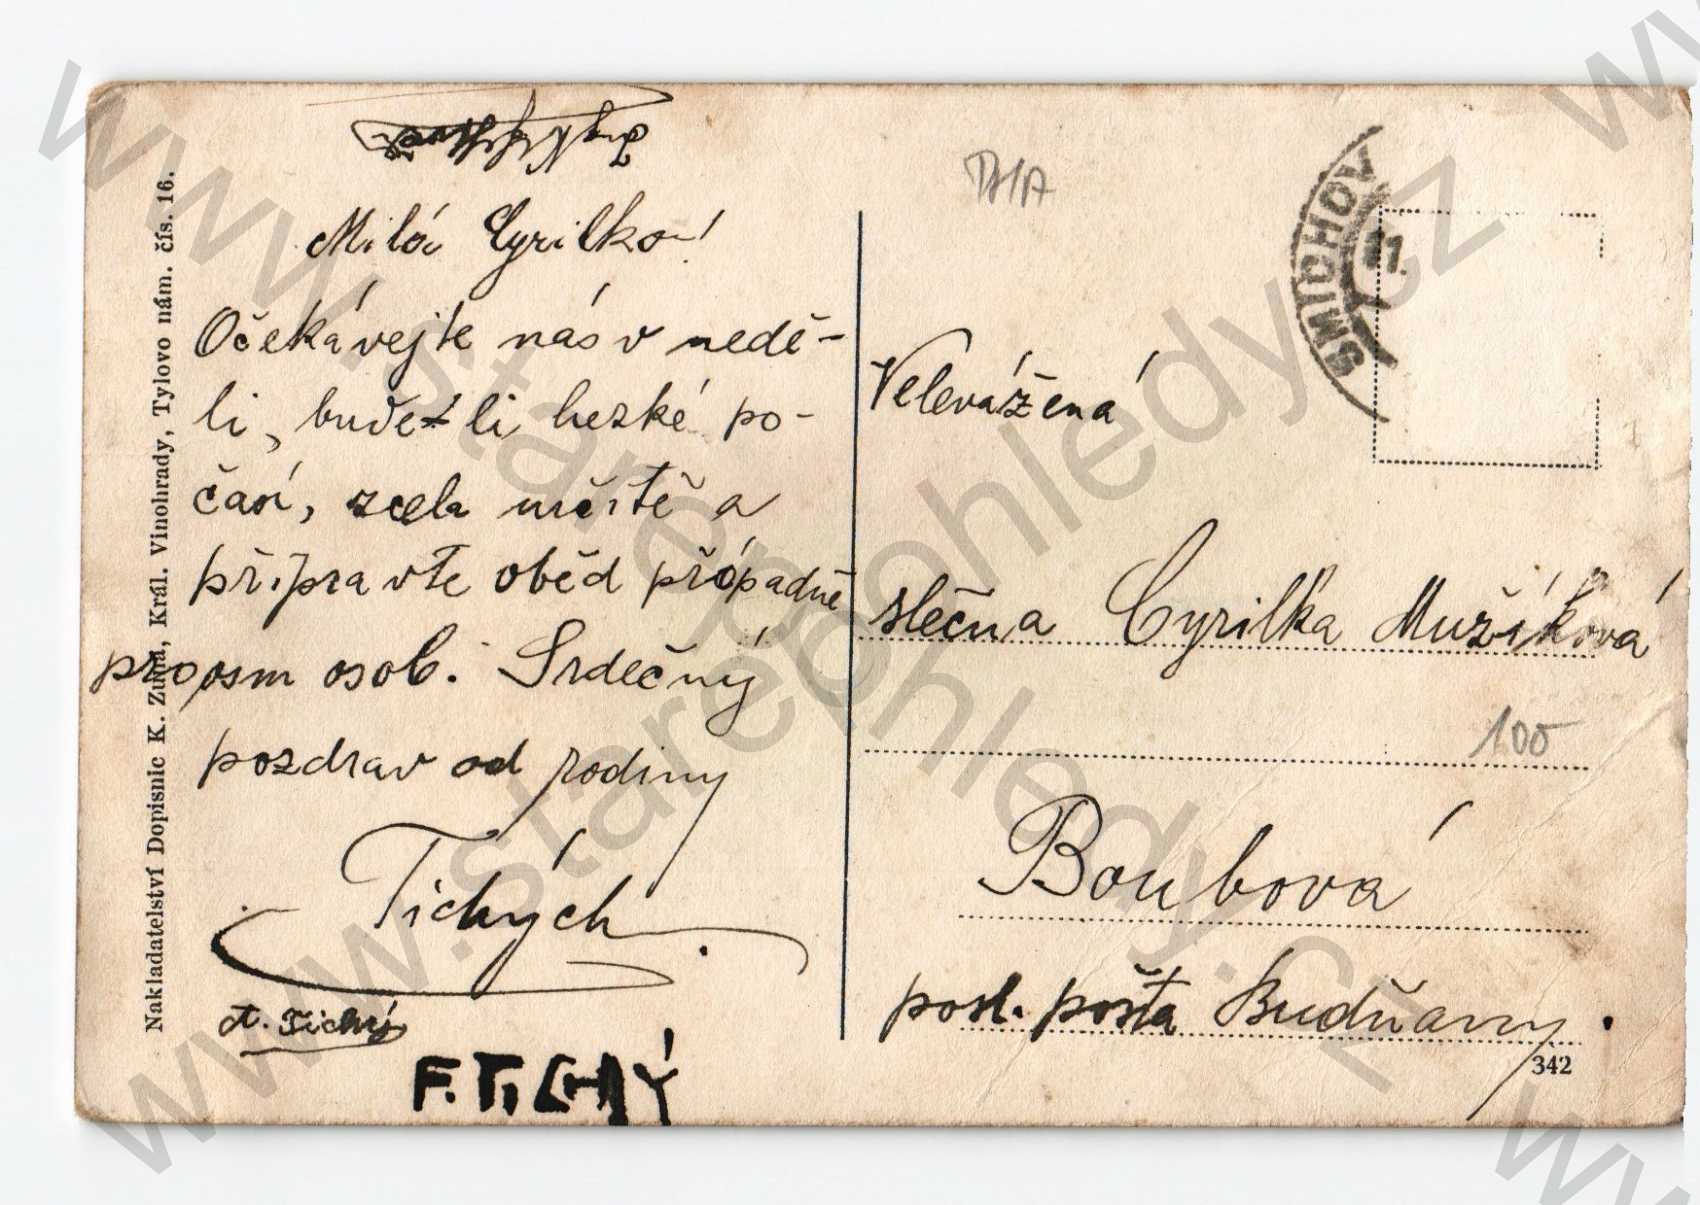 Milá Cyrilko!
Očekávejte nás v nedě-
li, bude-li hezké po-
časí, zcela určitě a
připravte oběd případně
pro osm osob. Srdečný
pozdrav od rodiny
Tichých.
A. Tichý
F. TICHÝ
Nakladatelství Dopisnic K. Zuna, Král. Vinohrady, Tylovo nám. čís. 16.
SMÍCHOV
Velevážená
slečna Cyrilka Mužíková
100
Boubová
posl. pošta Budňany.
342
www.starepohledy.cz
www.starepohledy.cz